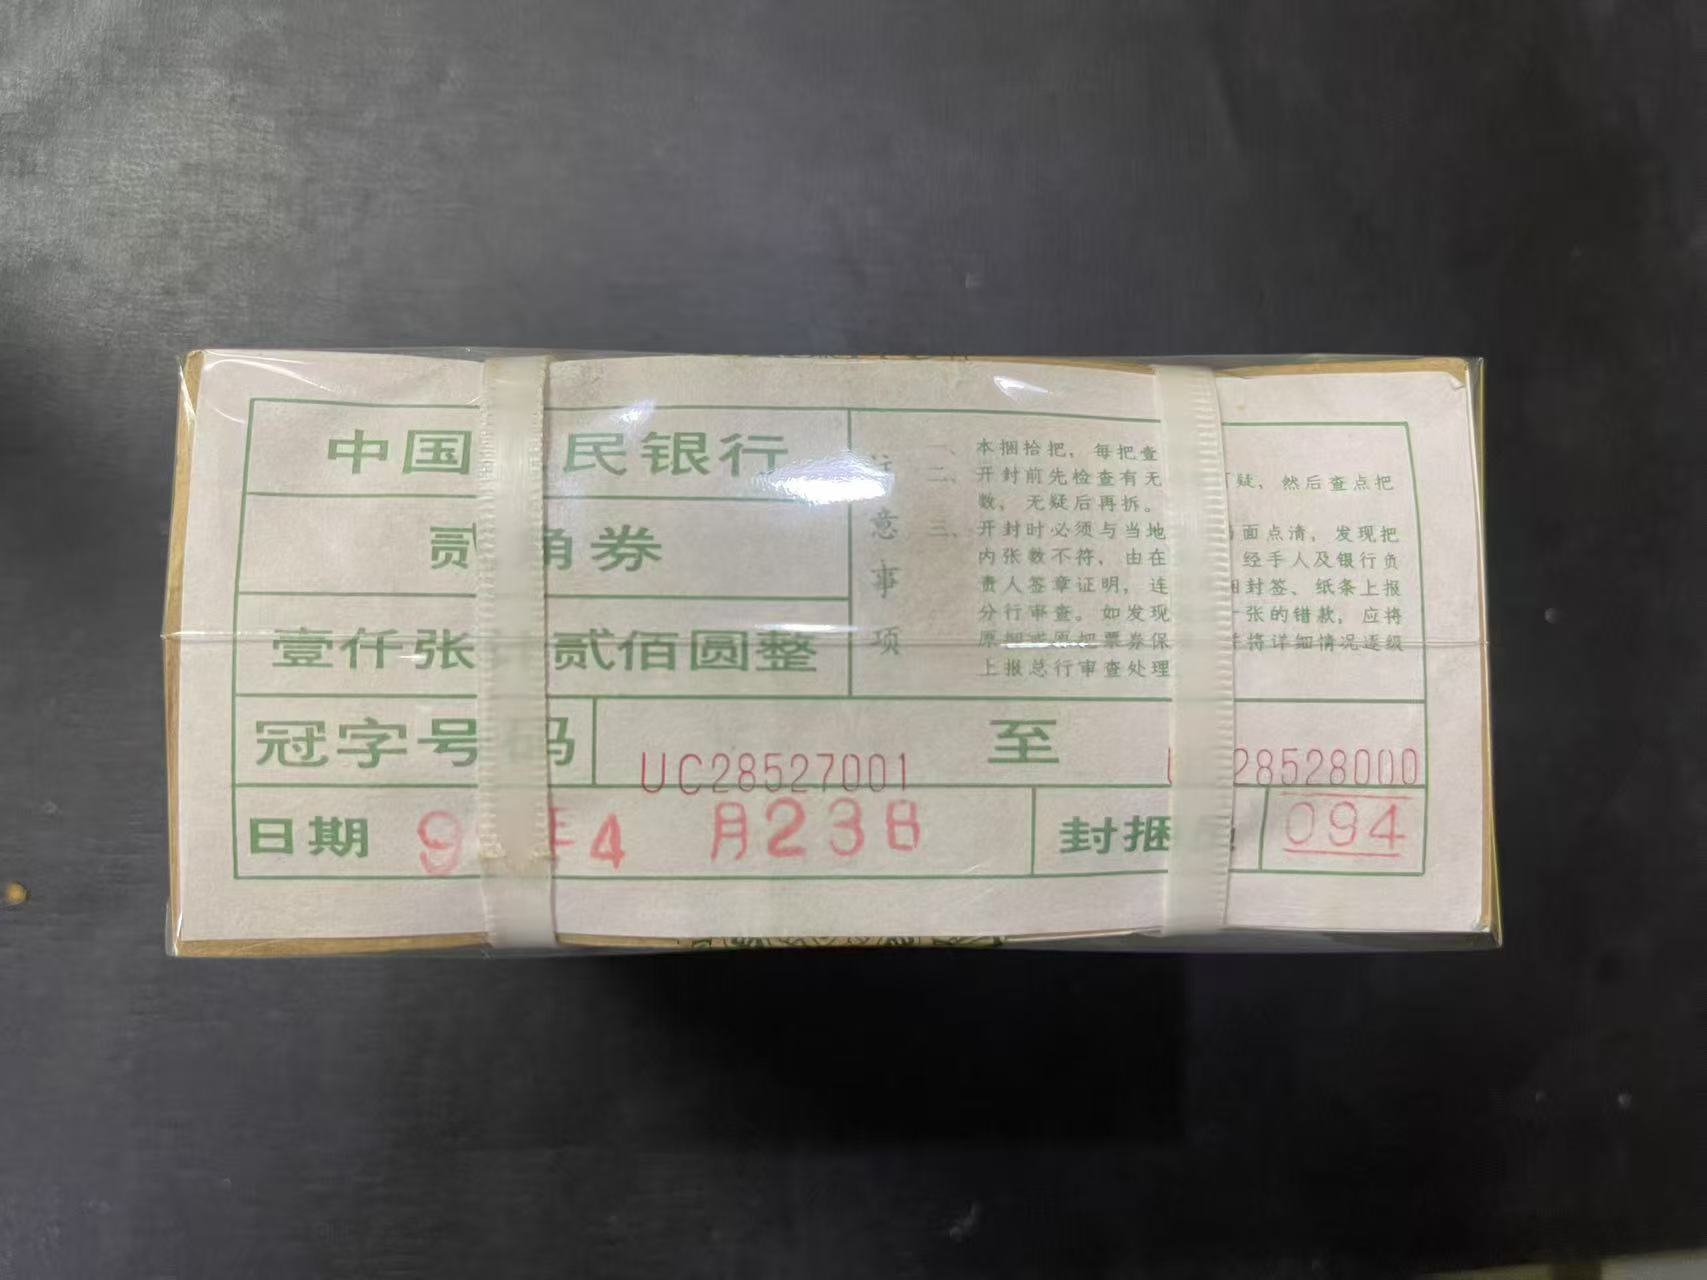 中国 民银行
贰角券
壹仟张 贰佰圆整
注意事项
一、本捆拾把，每把查
二、开封前先检查有无 可疑，然后查点把
数，无疑后再拆。
三、开封时必须与当地 面点清，发现把
内张数不符，由在 经手人及银行负
责人签章证明，连 封签、纸条上报
分行审查。如发现 十张的错款，应将
原捆或原把票券保 并将详细情况逐级
上报总行审查处理
冠字号码 UC28527001 至 28528000
日期 9 年4 月23日 封捆 094